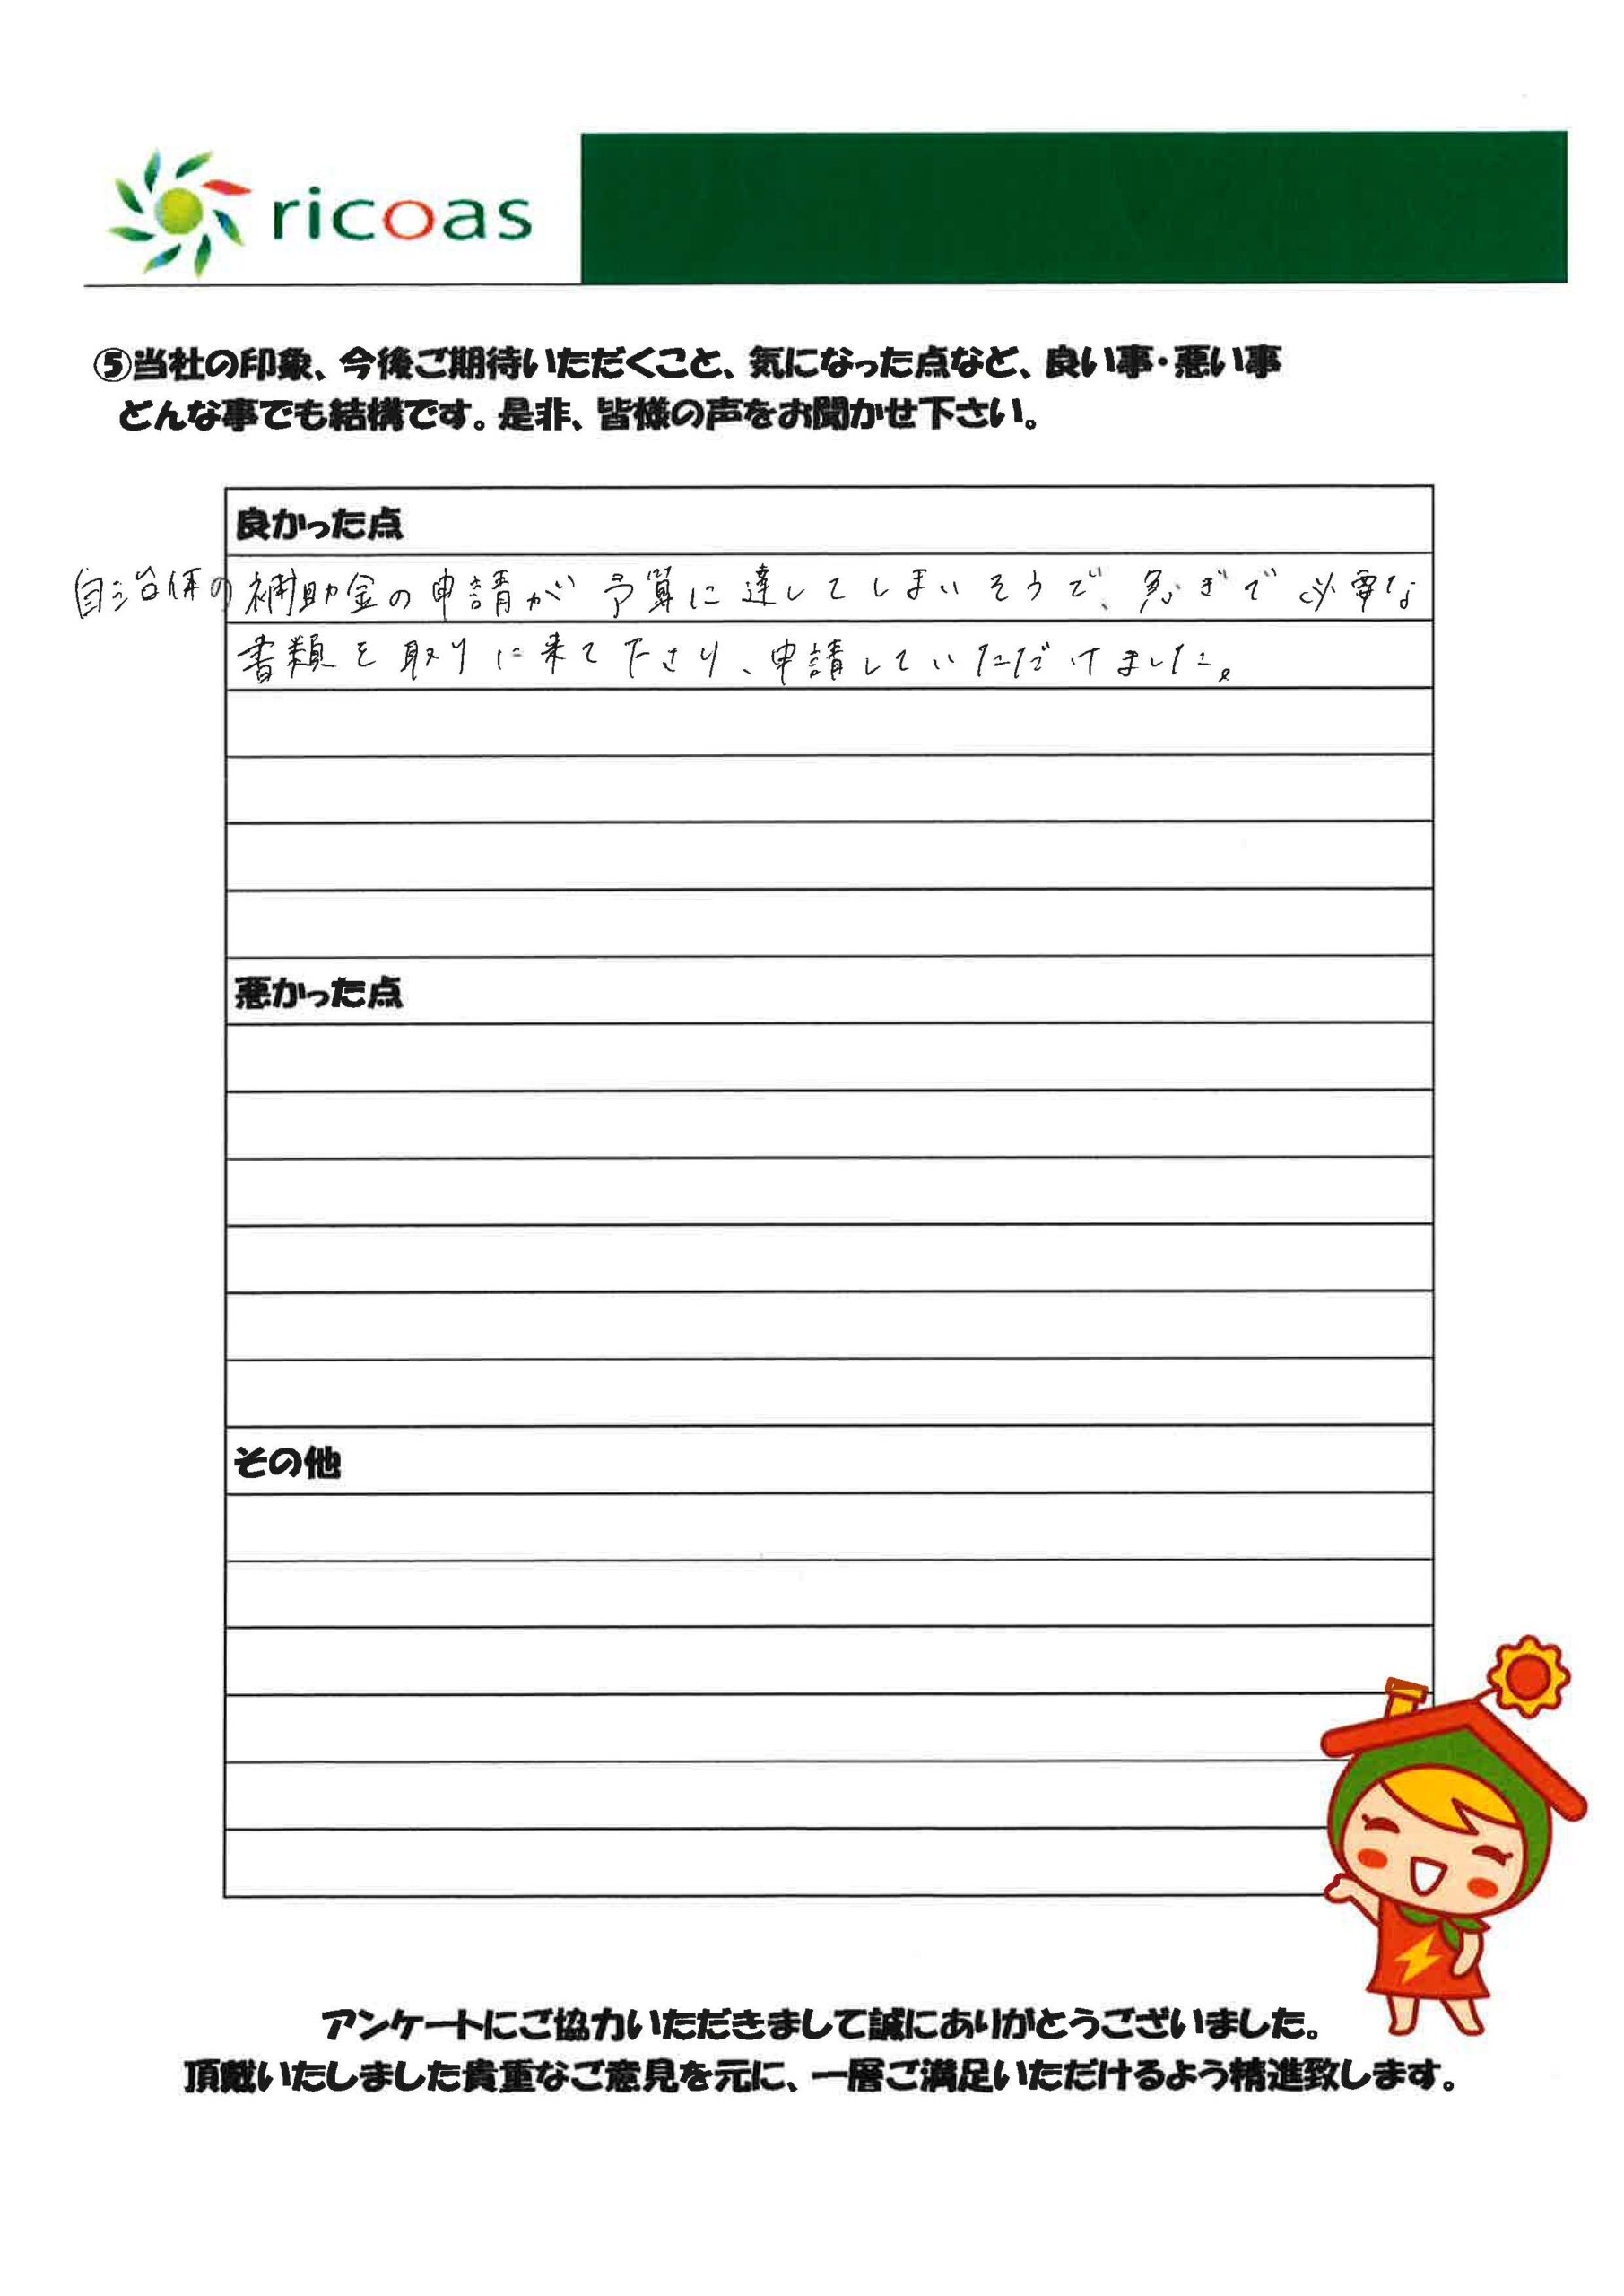 ricoas
⑤当社の印象、今後ご期待いただくこと、気になった点など、良い事・悪い事
どんな事でも結構です。是非、皆様の声をお聞かせ下さい。
良かった点
自治体の補助金の申請が予算に達してしまいそうで、急ぎで必要な
書類を取りに来て下さり、申請していただけました。
悪かった点
その他
アンケートにご協力いただきまして誠にありがとうございました。
頂戴いたしました貴重なご意見を元に、一層ご満足いただけるよう精進致します。